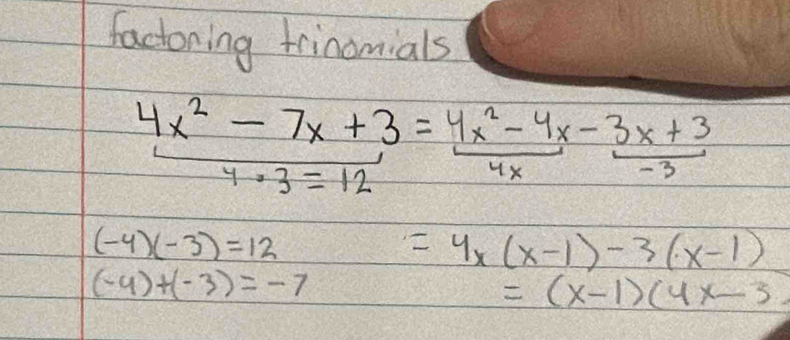 factoring trinomials
4x² - 7x + 3 = 4x² - 4x - 3x + 3
4 · 3 = 12 4x -3
(-4)(-3) = 12 = 4x (x-1) - 3 (x-1)
(-4)+(-3) = -7 = (x-1)(4x-3